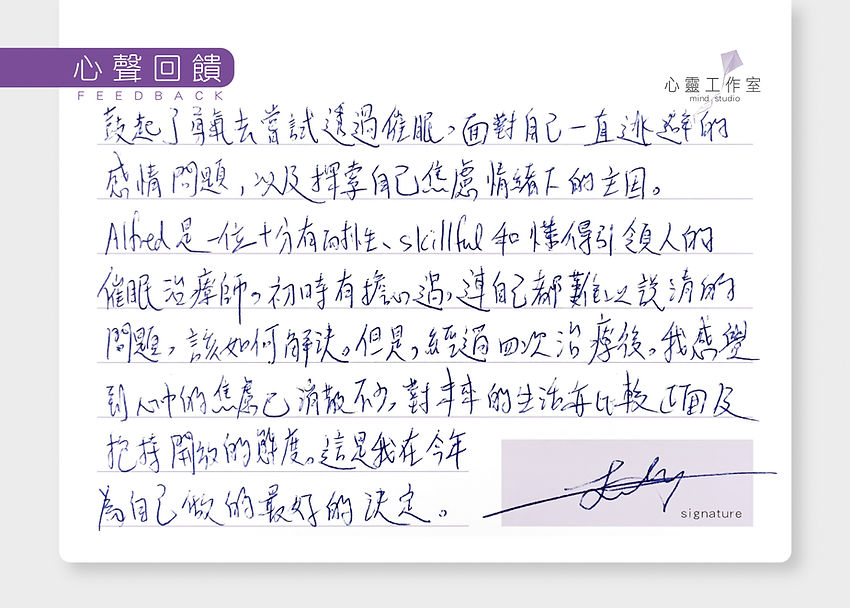 心聲回饋
FEEDBACK
心靈工作室
mind studio
鼓起了勇氣去嘗試透過催眠，面對自己一直逃避的
感情問題，以及探索自己焦慮情緒下的主因。
Alfred是一位十分有耐性、skillful和懂得引領人的
催眠治療師。初時有擔心過，連自己都難以說清的
問題，該如何解決。但是，經過四次治療後，我感覺
到心中的焦慮已消散不少，對未來的生活亦比較正面及
抱持開放的態度。這是我在今年
為自己做的最好的決定。
signature